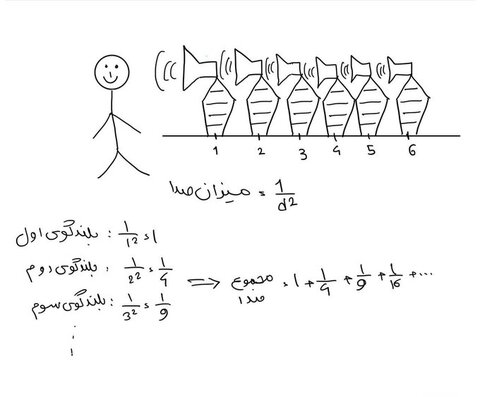 1 2 3 4 5 6
میزان صدا = 1/d²
بلندگوی اول : 1/1² = 1
بلندگوی دوم : 1/2² = 1/4
بلندگوی سوم : 1/3² = 1/9
⋮
⇐ مجموع صدا = 1 + 1/4 + 1/9 + 1/16 + ...